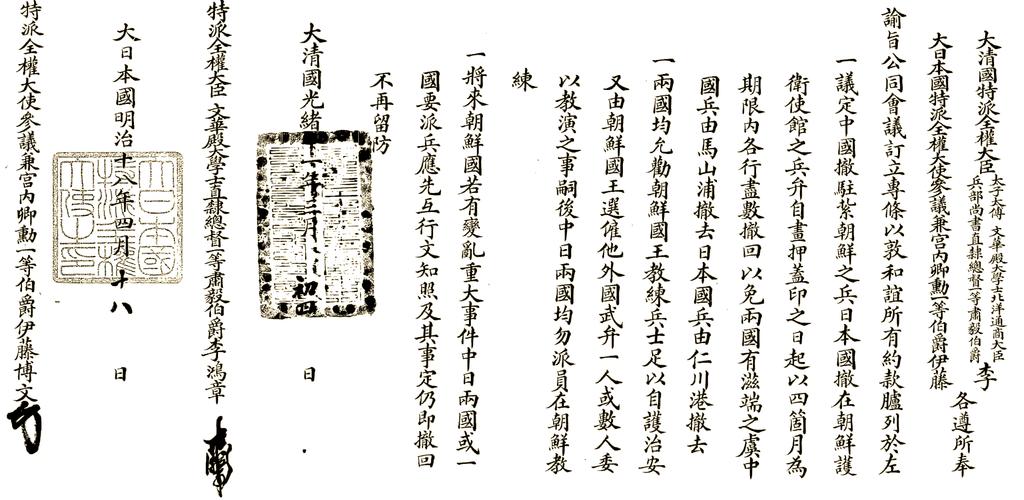 大清國特派全權大臣
太子太傅文華殿大學士北洋通商大臣
兵部尚書直隸總督一等肅毅伯爵
李
大日本國特派全權大使參議兼宮內卿勳一等伯爵伊藤
各遵所奉
諭旨公同會議訂立專條以敦和誼所有約款臚列於左
一議定中國撤駐紮朝鮮之兵日本國撤在朝鮮護
衛使館之兵弁自畫押蓋印之日起以四箇月為
期限內各行盡數撤回以免兩國有滋端之虞中
國兵由馬山浦撤去日本國兵由仁川港撤去
一兩國均允勸朝鮮國王教練兵士足以自護治安
又由朝鮮國王選僱他外國武弁一人或數人委
以教演之事嗣後中日兩國均勿派員在朝鮮教
練
一將來朝鮮國若有變亂重大事件中日兩國或一
國要派兵應先互行文知照及其事定仍即撤回
不再留防
大清國光緒十一年三月初四日
特派全權大臣文華殿大學士直隸總督一等肅毅伯爵李鴻章
大日本國明治十八年四月十八日
特派全權大使參議兼宮內卿勳一等伯爵伊藤博文